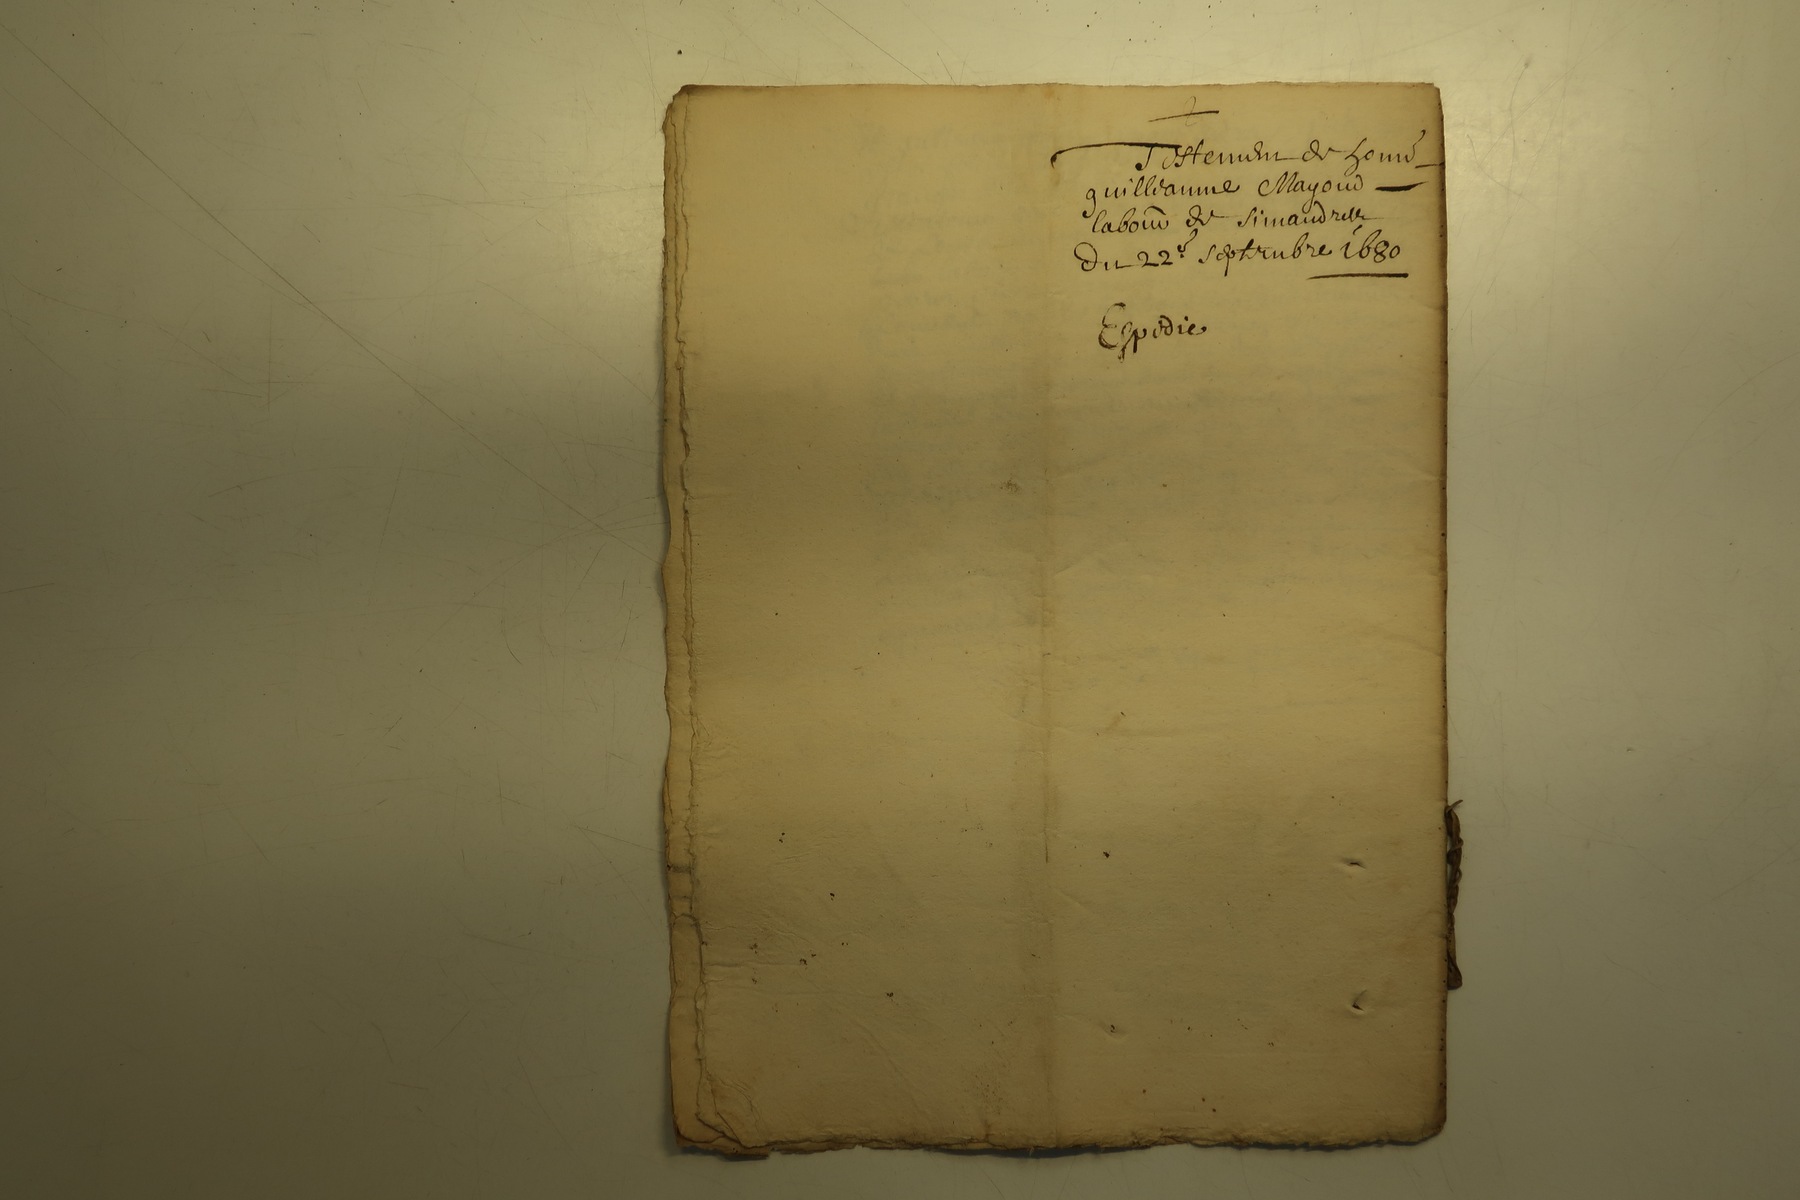 Testemen de honne
guilleaume Mayoud
labour de simandres
Du 22e septembre 1680
Espedie